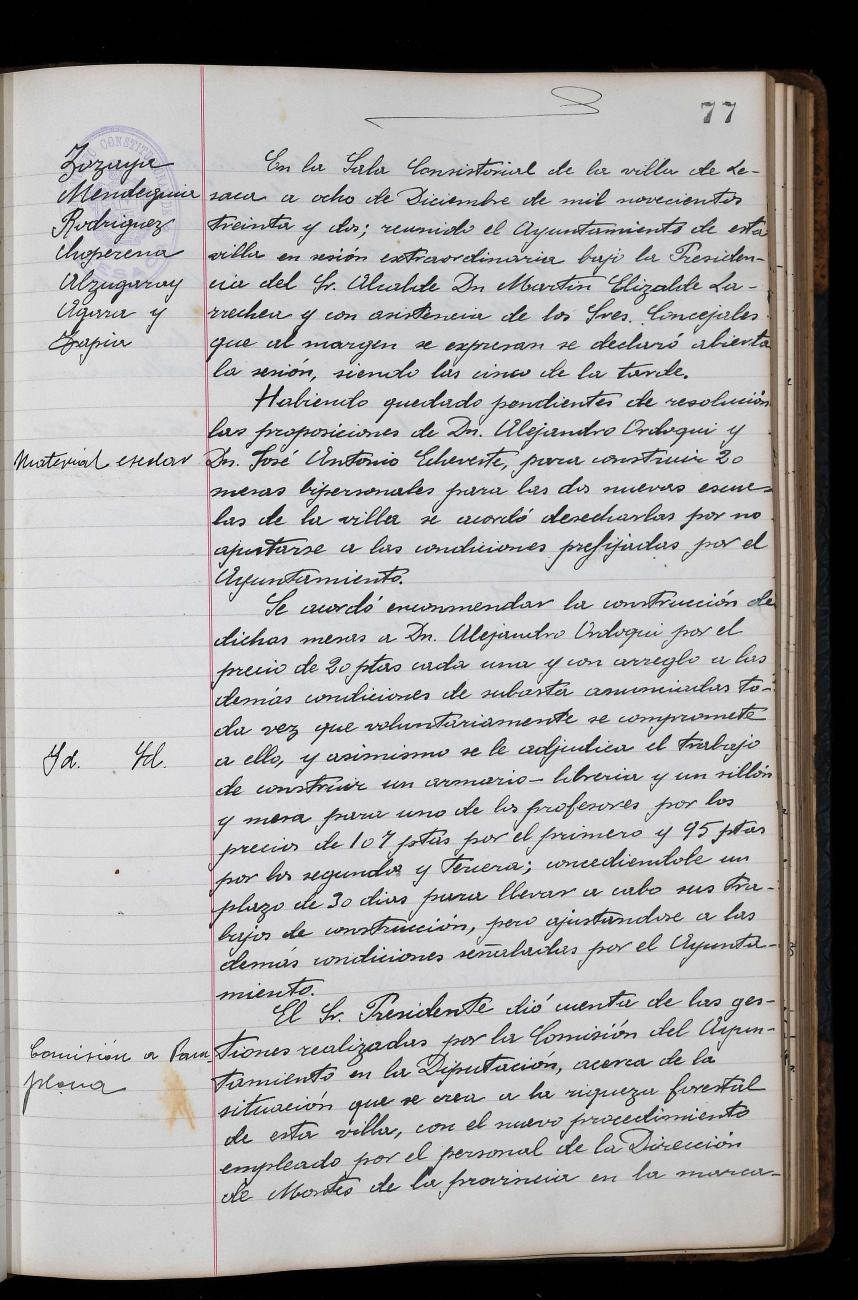 77
Zozaya
Mendeguia
Rodriguez
Choperena
Alzugaray
Agara y
Tapia
En la Sala Consistorial de la villa de Le-
saca a ocho de Diciembre de mil novecientos
treinta y dos; reunido el Ayuntamiento de esta
villa en sesión extraordinaria bajo la Presiden-
cia del Sr. Alcalde Dn Martín Elizalde La-
rrechea y con asistencia de los Sres. Concejales
que al margen se expresan se declaró abierta
la sesión, siendo las cinco de la tarde.
Material escolar
Habiendo quedado pendientes de resolución
las proposiciones de Dn. Alejandro Ordoqui y
Dn. José Antonio Echeveste, para construir 20
mesas bipersonales para las dos nuevas escue-
las de la villa se acordó desecharlas por no
ajustarse a las condiciones prefijadas por el
Ayuntamiento.
Id. Id.
Se acordó encommendar la construcción de
dichas mesas a Dn. Alejandro Ordoqui por el
precio de 20 ptas cada una y con arreglo a las
demás condiciones de subasta anunciadas to-
da vez que voluntariamente se compromete
a ello, y asimismo se le adjudica el trabajo
de construir un armario-libreria y un sillón
y mesa para uno de los profesores por los
precios de 107 ptas por el primero y 95 ptas
por los segundos y tercera; concediendole un
plazo de 30 dias para llevar a cabo sus tra-
bajos de construcción, pero ajustandose a las
demás condiciones señaladas por el Ayunta-
miento.
Comisión a Pam-
plona
El Sr. Presidente dió cuenta de las ges-
tiones realizadas por la Comisión del Ayun-
tamiento en la Diputación, acerca de la
situación que se crea a la riqueza forestal
de esta villa, con el nuevo procedimiento
empleado por el personal de la Dirección
de Montes de la provincia en la marca-